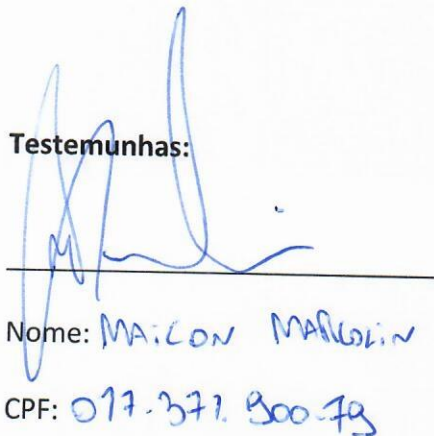 Testemunhas:
Nome: MAiCON MARCOLiN
CPF: 017.371.900-79